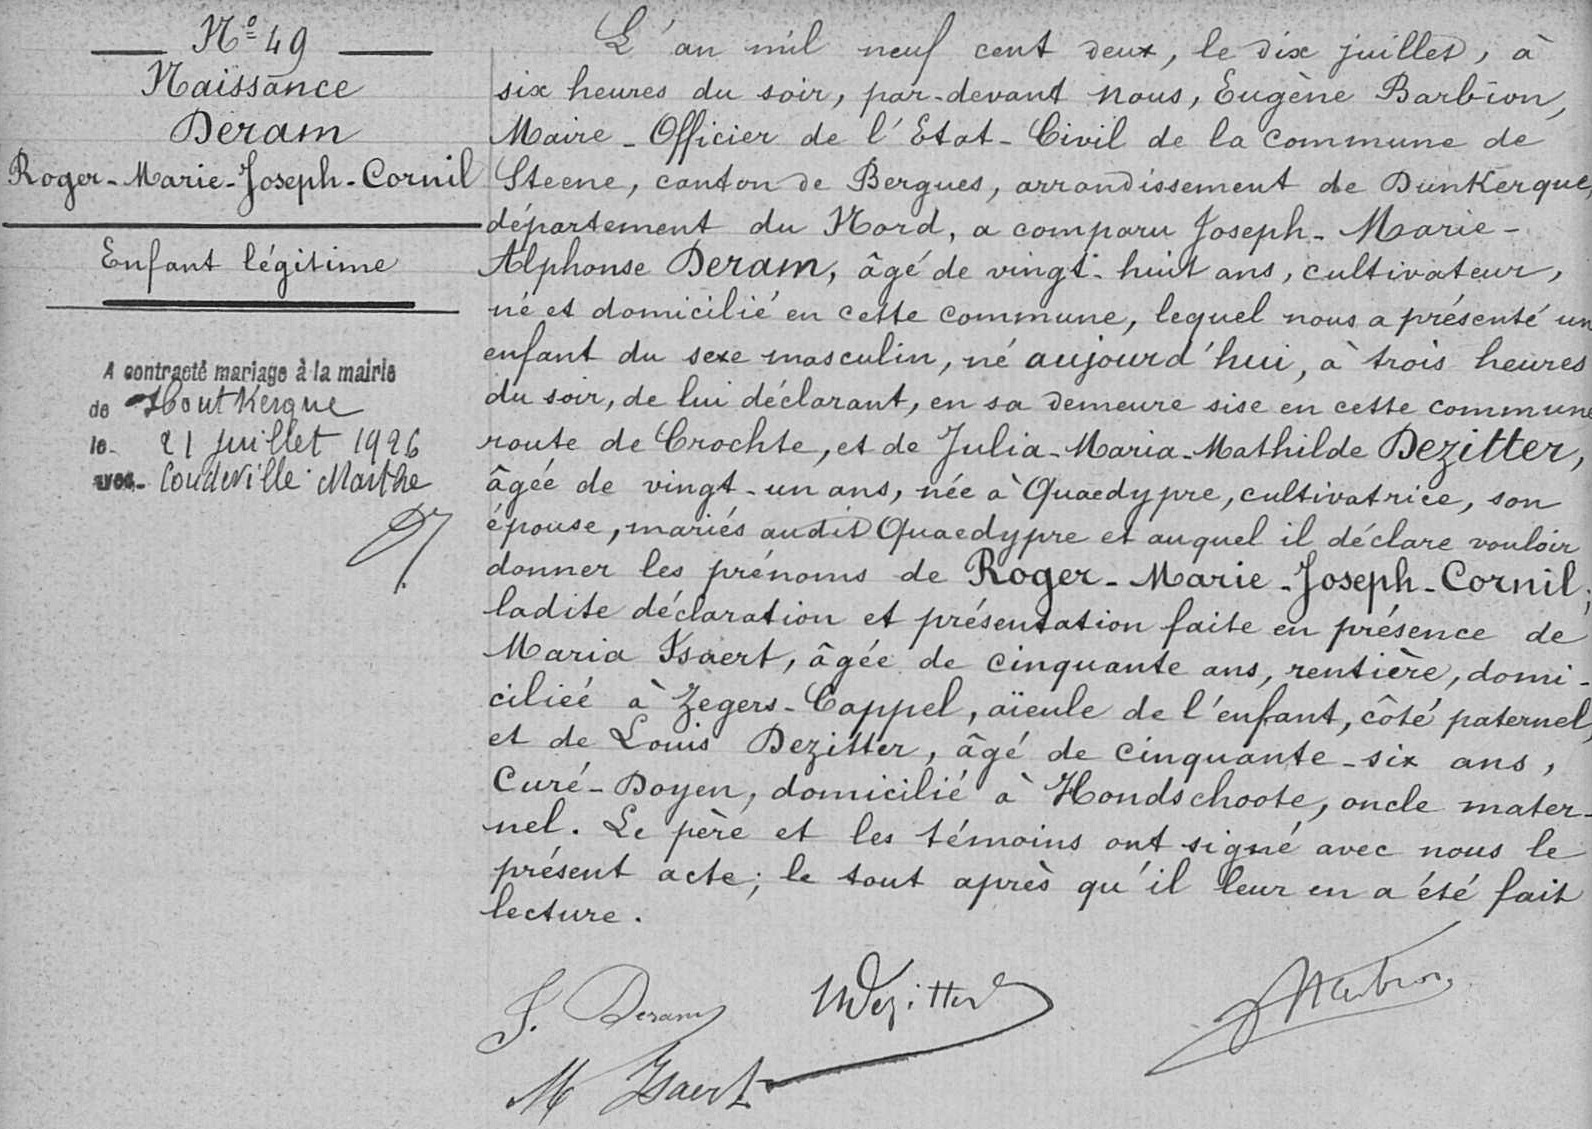 N° 49
Naissance
Deram
Roger-Marie-Joseph-Cornil
Enfant légitime
A contracté mariage à la mairie
de Houtkerque
le 21 juillet 1926
avec Coudeville Marthe
L'an mil neuf cent deux, le dix juillet, à
six heures du soir, par-devant nous, Eugène Barbion,
Maire-Officier de l'Etat-Civil de la commune de
Steene, canton de Bergues, arrondissement de Dunkerque,
département du Nord, a comparu Joseph-Marie-
Alphonse Deram, âgé de vingt-huit ans, cultivateur,
né et domicilié en cette commune, lequel nous a présenté un
enfant du sexe masculin, né aujourd'hui, à trois heures
du soir, de lui déclarant, en sa demeure sise en cette commune
route de Crochte, et de Julia-Maria-Mathilde Dezitter,
âgée de vingt-un ans, née à Quaedypre, cultivatrice, son
épouse, mariés audit Quaedypre et auquel il déclare vouloir
donner les prénoms de Roger-Marie-Joseph-Cornil;
ladite déclaration et présentation faite en présence de
Maria Ysaert, âgée de cinquante ans, rentière, domi-
ciliéé à Zegers-Cappel, aïeule de l'enfant, côté paternel,
et de Louis Dezitter, âgé de cinquante-six ans,
Curé-Doyen, domicilié à Hondschoote, oncle mater-
nel. Le père et les témoins ont signé avec nous le
présent acte; le tout après qu'il leur en a été fait
lecture.
J. Deram Dezitter
M Ysaert